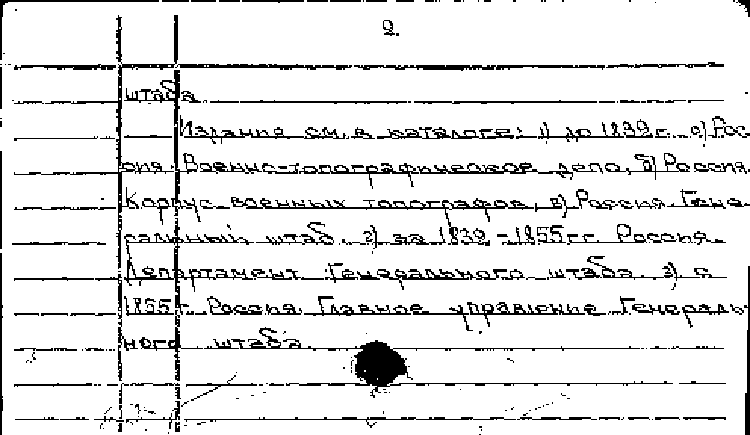 2.
штаба
Издания см. в каталоге: 1) до 1832 г. а) Рос
сия. Военно-топографическое депо, б) Россия.
Корпус военных топографов, в) Россия. Гене-
ральный штаб. 2) за 1832-1855 гг. Россия.
Департамент Генерального штаба. 3) с
1855 г. Россия. Главное управление Генераль-
ного штаба.